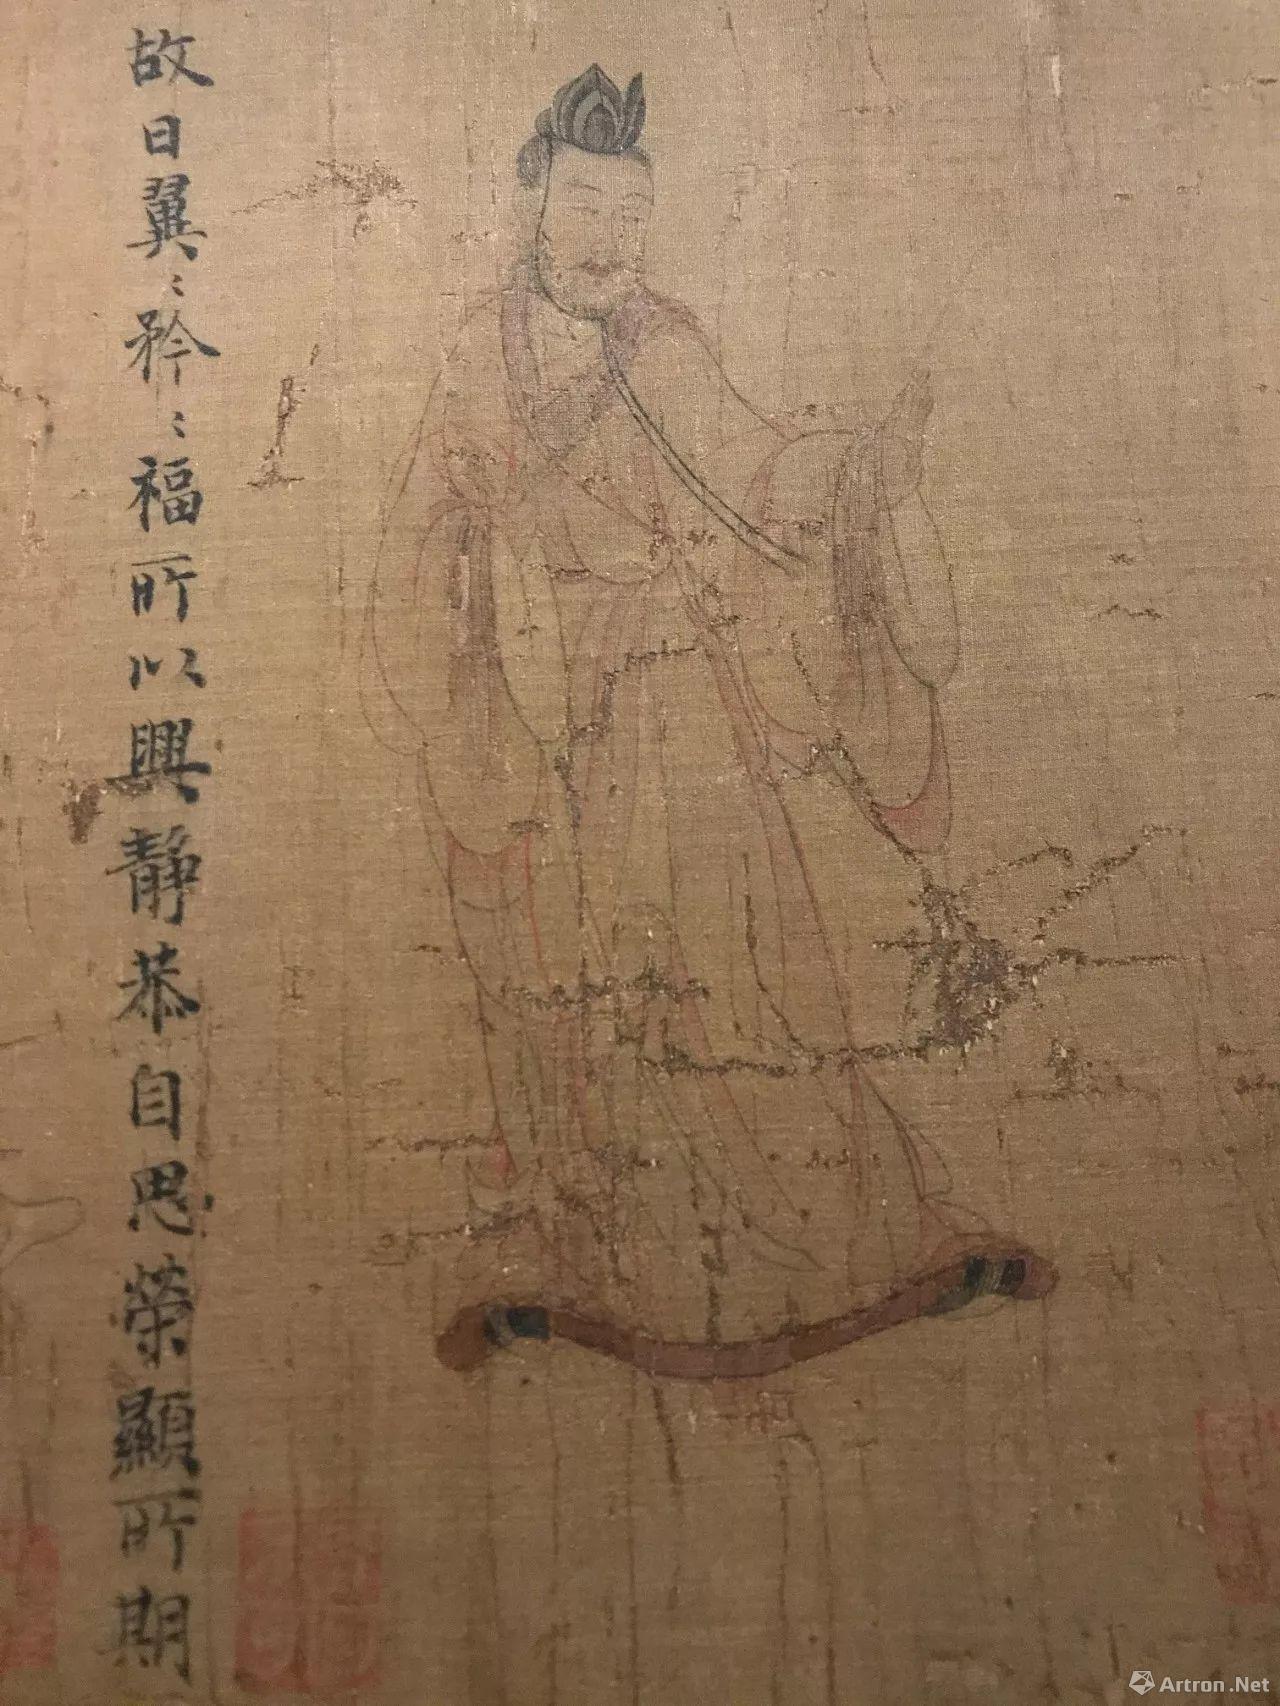 故曰翼〻矜〻福所以興靜恭自思榮顯所期
Artron.Net